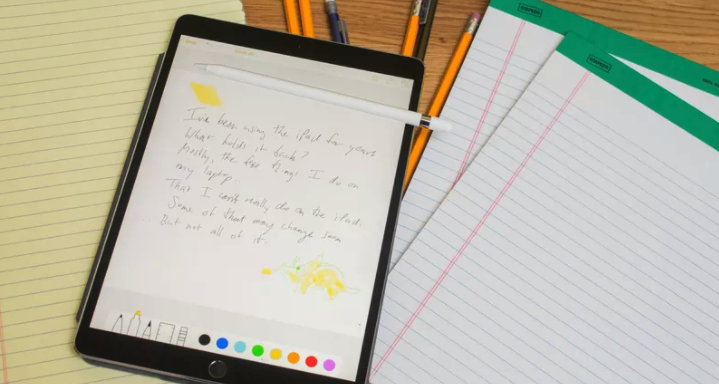 I've been using the iPad for years
What holds it back?
Mostly, the few things I do on
my laptop.
That I can't really do on the iPad.
Some of that may change soon
But not all of it.